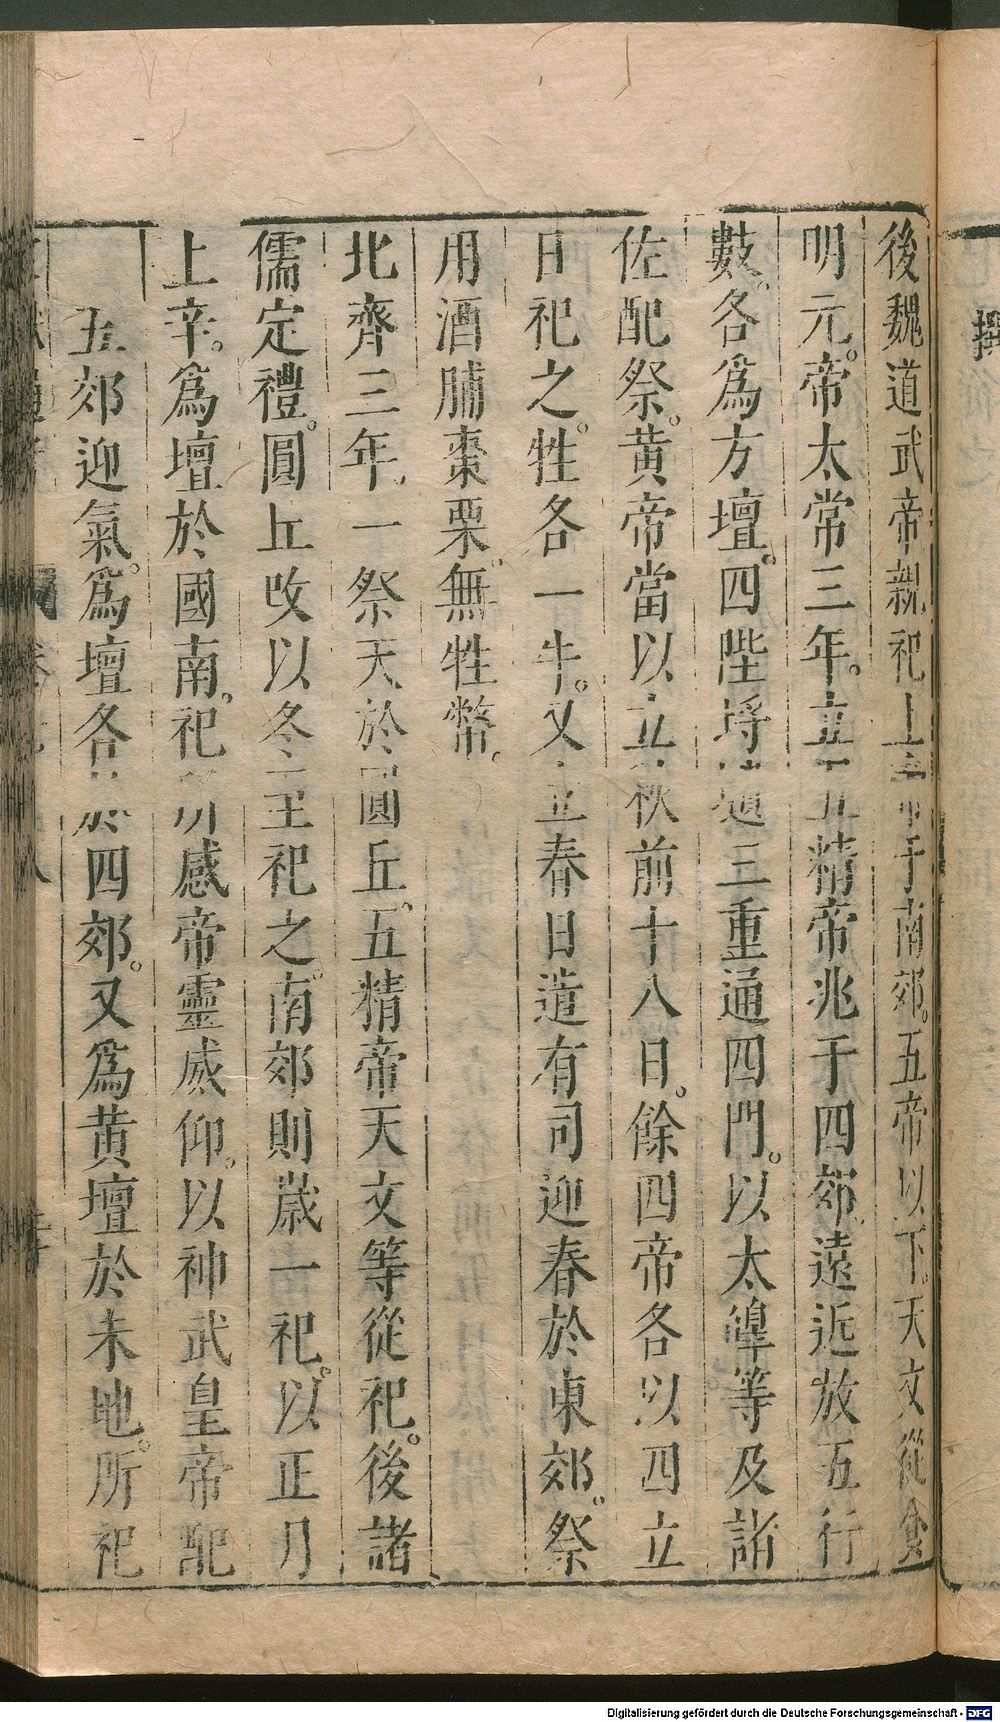 後魏道武帝親祀上帝于南郊。五帝以下。天文從食
明元。帝太常三年。立五精帝兆于四郊遠近放五行
數。各爲方壇。四陛埒壝三重通四門。以太皥等及諸
佐配祭。黃帝當以立秋前十八日。餘四帝各以四立
日祀之。牲各一牛。又立春日遣有司迎春於東郊。祭
用酒脯棗栗。無牲幣。
北齊三年。一祭天於圓丘。五精帝天文等從祀。後諸
儒定禮。圓丘改以冬至祀之。南郊則歲一祀。以正月
上辛。爲壇於國南。祀所感帝靈威仰。以神武皇帝配
五郊迎氣。爲壇各於四郊。又爲黃壇於未地。所祀
撰
Digitalisierung gefördert durch die Deutsche Forschungsgemeinschaft - DFG